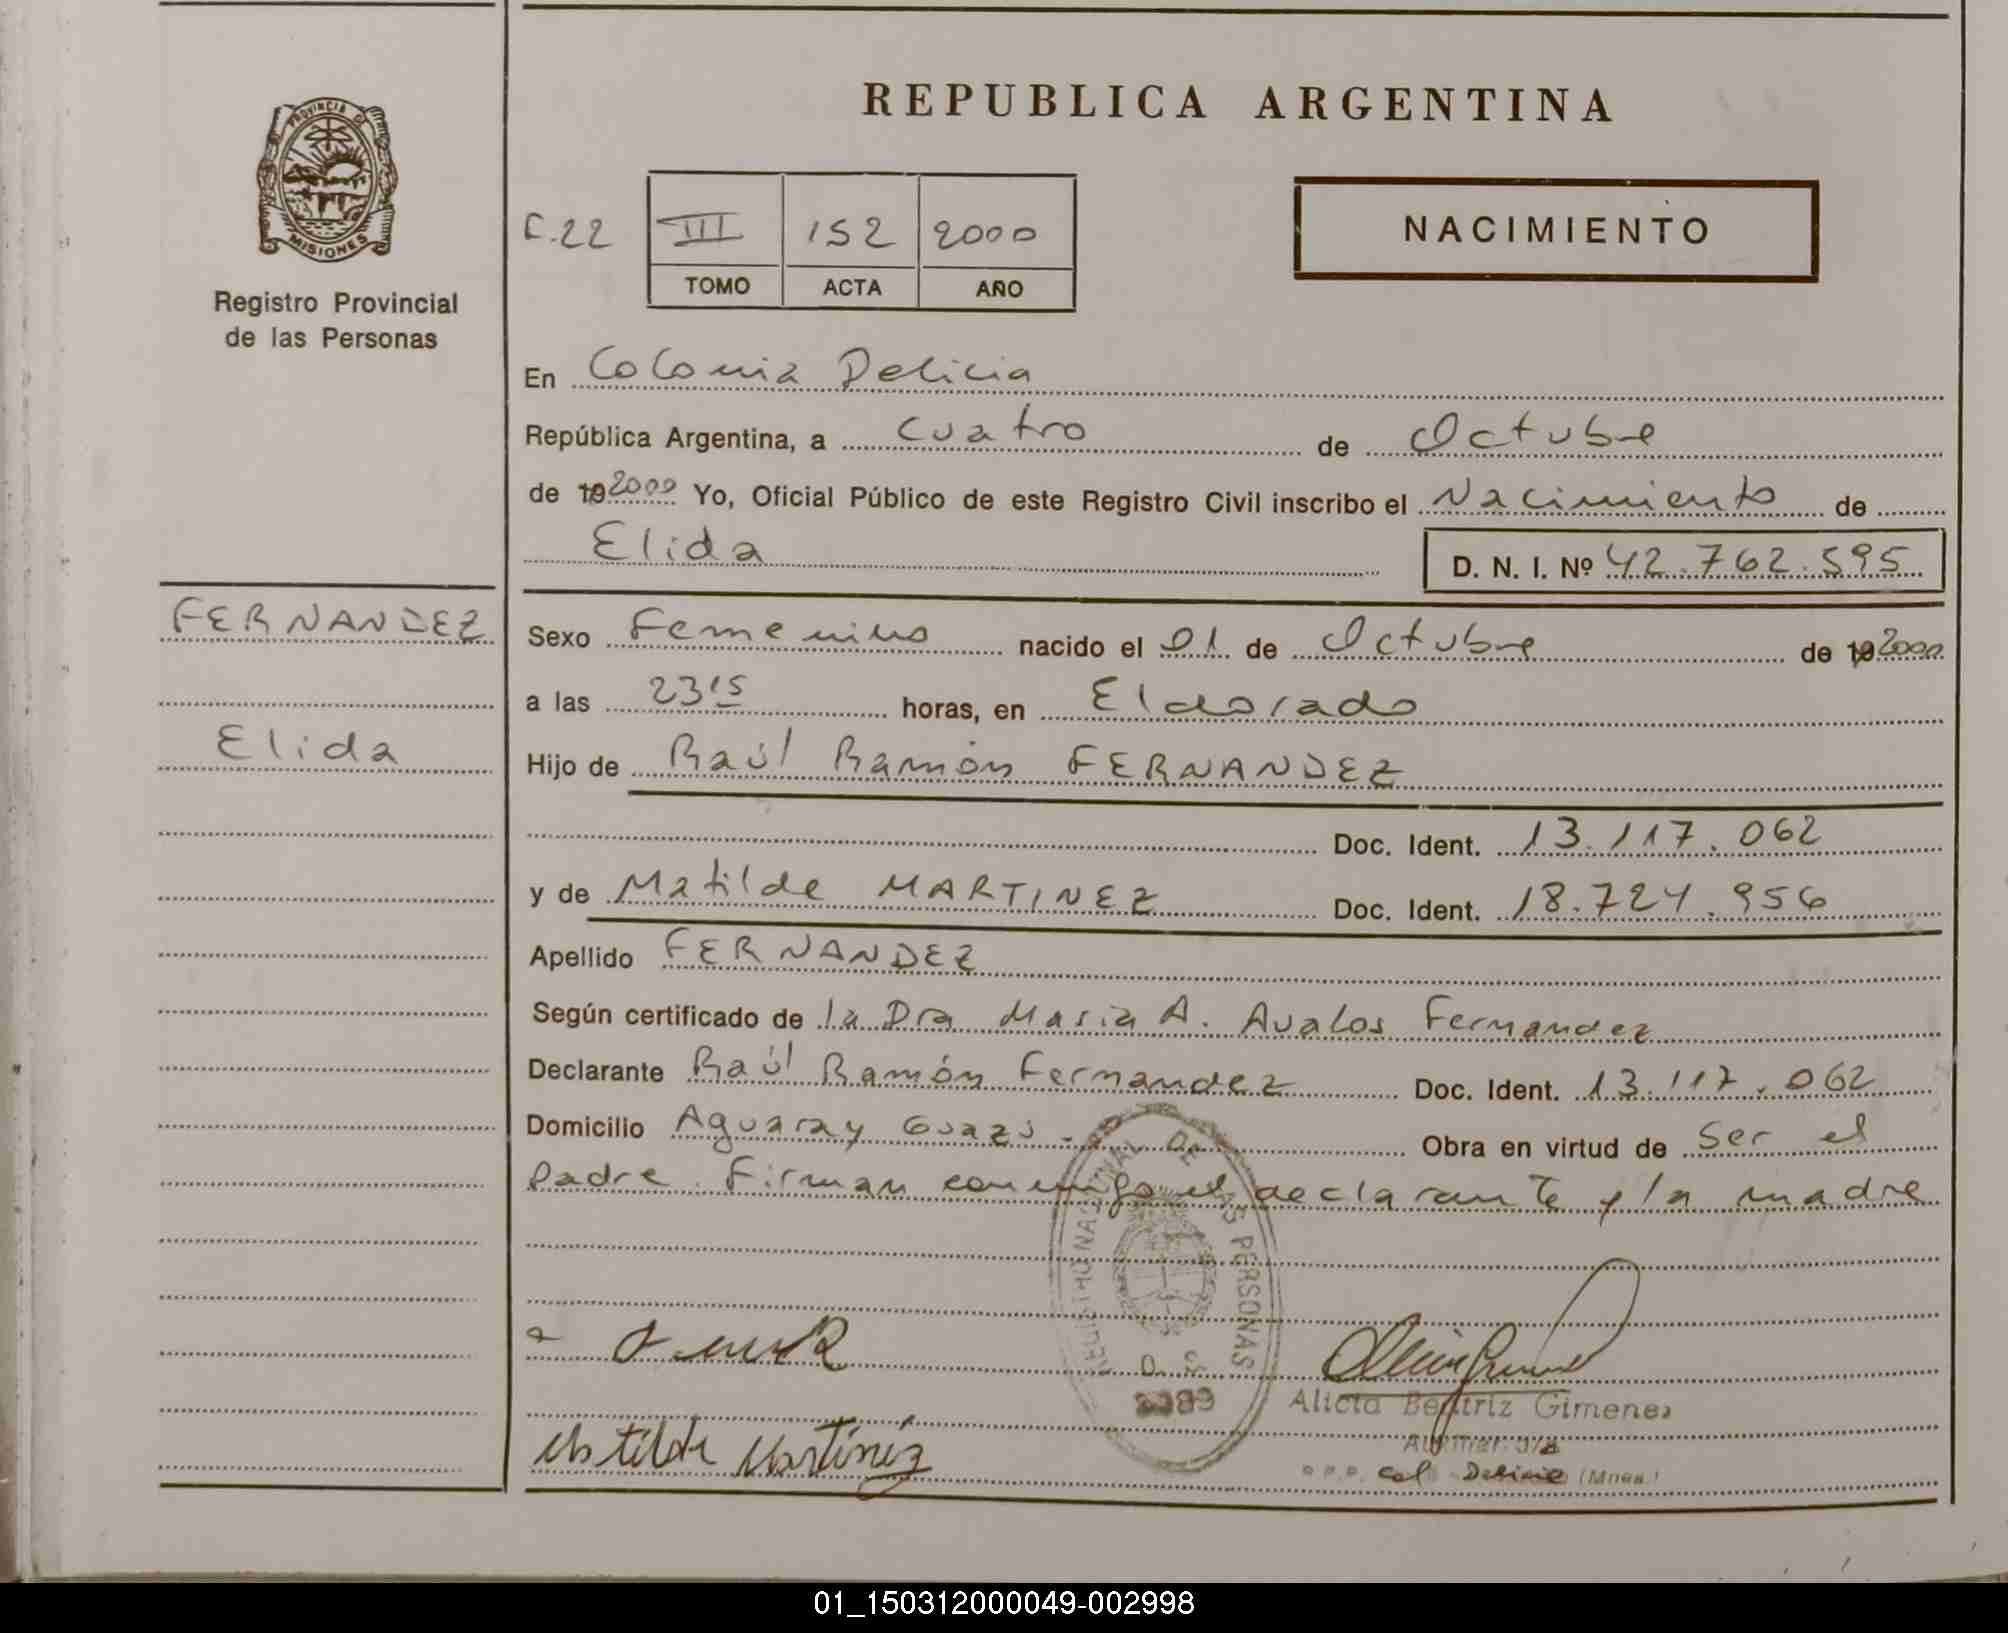 PROVINCIA DE
MISIONES
Registro Provincial
de las Personas
REPUBLICA ARGENTINA
F.22 III 152 2000
TOMO ACTA AÑO
NACIMIENTO
En Colonia Delicia
República Argentina, a cuatro de Octubre
de 19 2000 Yo, Oficial Público de este Registro Civil inscribo el Nacimiento de
Elida D. N. I. Nº 42.762.595
FERNANDEZ
Elida
Sexo Femenino nacido el 01 de Octubre de 19 2000
a las 23 15 horas, en Eldorado
Hijo de Raúl Ramón FERNANDEZ
Doc. Ident. 13.117.062
y de Matilde MARTINEZ Doc. Ident. 18.724.956
Apellido FERNANDEZ
Según certificado de la Dra Maria A. Avalos Fernandez
Declarante Raúl Ramón Fernandez Doc. Ident. 13.117.062
Domicilio Aguaray Guazú - Obra en virtud de ser el
Padre. Firman conmigo el declarante y la madre
REGISTRO NACIONAL DE LAS PERSONAS
Matilde Martinez
Alicia Beatriz Gimenez
Col Delicia (Mnes.)
01_150312000049-002998